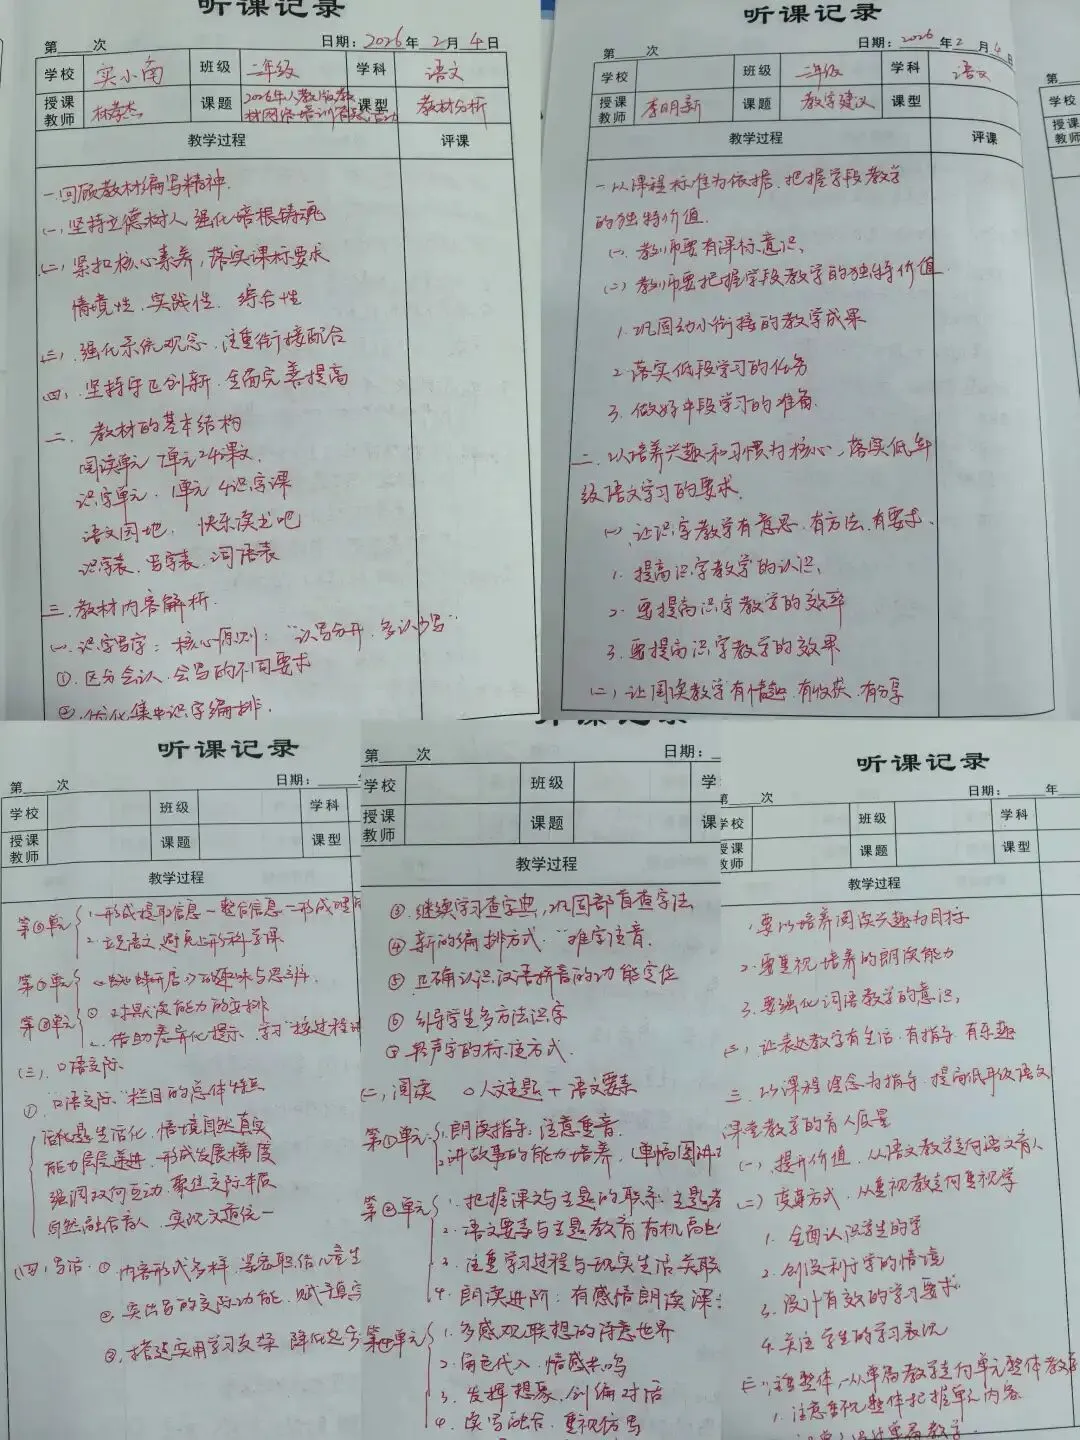 听课记录
第 次 日期：2026年2月4日
学校 实小南 班级 二年级 学科 语文
授课教师 林孝杰 课题 2026年人教版教材网络培训 课型 教材分析
教学过程 评课
一.回顾教材编写精神.
(一)坚持立德树人 强化培根铸魂
(二)紧扣核心素养,落实课标要求
情境性.实践性.综合性
(三).强化系统观念.注重衔接配合
(四).坚持守正创新.全面完善提高
二.教材的基本结构
阅读单元 7单元24课文.
识字单元.1单元 4识字课
语文园地,快乐读书吧
识字表.写字表.词语表
三.教材内容解析.
(一).识字写字:核心原则:"认写分开.多认少写"
①.区分会认.会写的不同要求
②.优化集中识字编排.
听课记录
第 次 日期：2026年2月4日
学校 班级 二年级 学科 语文
授课教师 李明新 课题 教学建议 课型
教学过程 评课
一.以课程标准为依据.把握学段教学
的独特价值.
(一).教师要有课标意识、
(二)教师要把握学段教学的独特价值.
1.巩固幼小衔接的教学成果
2.落实低段学习的任务
3.做好中段学习的准备.
二.以培养兴趣和习惯为核心,落实低年
级语文学习的要求.
(一).让识字教学有意思.有方法.有要求.
1.提高识字教学的认识、
2.要提高识字教学的效率
3.要提高识字教学的效果
(二)让阅读教学有情趣.有收获.有分享
第
学校
授课教师
听课记录
第 次 日期：
学校 班级 学科
授课教师 课题 课型
教学过程
第⑥单元 1.形成提取信息—整合信息
2.立足语文,避免上成科学课
第⑦单元 的趣味与思辨.
第⑧单元 ①对默读能力的安排
2.借助差异化提示.学习
(三).口语交际.
①."口语交际"栏目的总体特点
话题生活化.情境自然真实
能力层层递进.形成发展梯度
强调双向互动.聚焦交际本质
自然融合育人.实现文道统一
(四).写话.①内容形式多样.
②突出写的交际功能.赋予真实
③.搭建实用学习支架 降低
听课记录
第 次 日期：
学校 班级 学
授课教师 课题 课
教学过程
③.继续学习查字典,巩固部首查字法
④新的编排方式."难字注音.
⑤正确认识汉语拼音的功能定位
⑥引导学生多方法识字
⑦轻声字的标注方式.
(二),阅读 人文主题+语文要素
第①单元 1.朗读指导:注意重音.
2.讲故事的能力培养.
第②单元 1.把握课文与主题的联系:主题
2.语文要素与主题教育有机
3.注重学习过程与现实生活关联
4.朗读进阶:有感情朗读 课
第④单元 1.多感观联想的诗意世界
2.角色代入.情感共鸣
3.发挥想象.创编对话
4.读写融合.重视仿写
听课记录
第 次 日期： 年
学校 班级 学科
授课教师 课题 课型
教学过程
1.要以培养阅读兴趣为目标
2.要重视培养的朗读能力
3.要强化词语教学的意识,
(三),让表达教学有生活.有指导.有乐趣
三.以课程理念为指导.提高低年级语文
课堂教学的育人质量
(一),提升价值.从语文教学走向语文育人
(二)变革方式.从重视教走向重视学
1.全面认识学生的学
2.创设利于学的情境
3.设计有效的学习要求.
4.关注学生的学习表现
(三)注重整体.从单篇教学走向单元整体教
1.注意重视整体把握单元内容